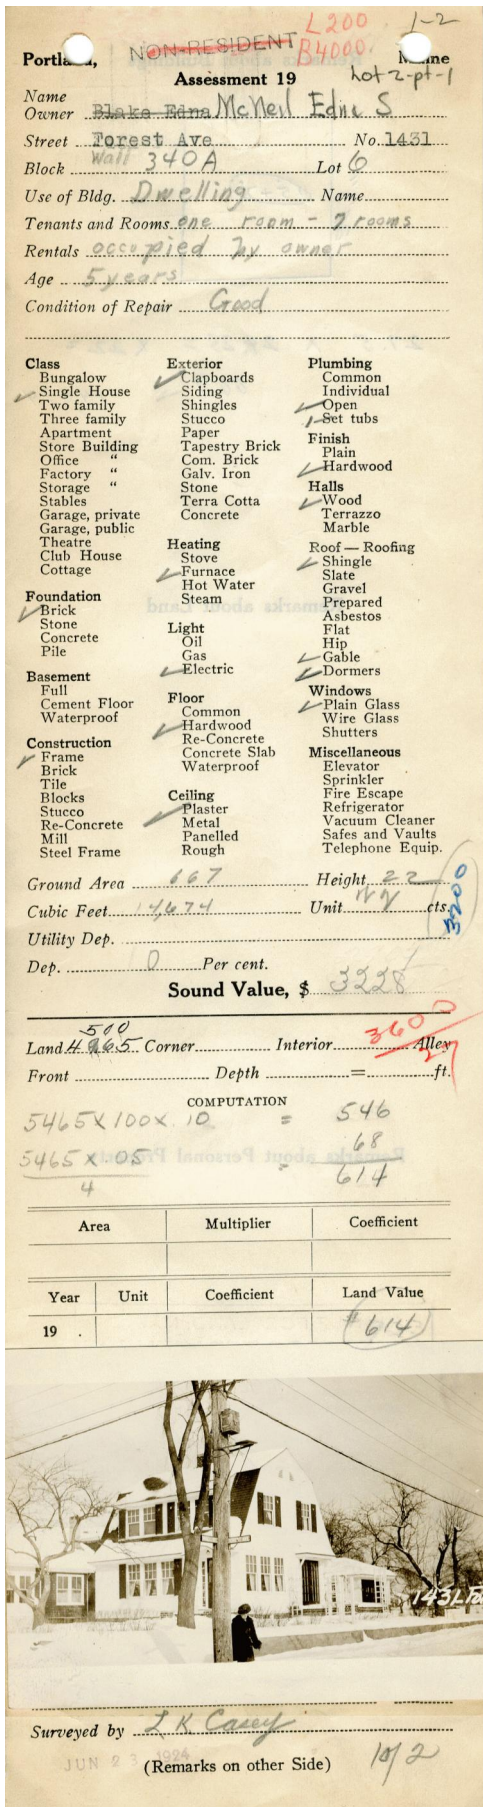 L200 1-2
NON-RESIDENT B4000
Portland, Maine
Assessment 19 Lot 2-pt-1
Name
Owner Blake Edna McNeil Edna S
Street Forest Ave No. 1431
Block Wall 340A Lot 6
Use of Bldg. Dwelling Name
Tenants and Rooms one room - 7 rooms
Rentals occupied by owner
Age 5 years
Condition of Repair Good
Class
Bungalow
Single House
Two family
Three family
Apartment
Store Building
Office "
Factory "
Storage "
Stables
Garage, private
Garage, public
Theatre
Club House
Cottage
Foundation
Brick
Stone
Concrete
Pile
Basement
Full
Cement Floor
Waterproof
Construction
Frame
Brick
Tile
Blocks
Stucco
Re-Concrete
Mill
Steel Frame
Exterior
Clapboards
Siding
Shingles
Stucco
Paper
Tapestry Brick
Com. Brick
Galv. Iron
Stone
Terra Cotta
Concrete
Heating
Stove
Furnace
Hot Water
Steam
Light
Oil
Gas
Electric
Floor
Common
Hardwood
Re-Concrete
Concrete Slab
Waterproof
Ceiling
Plaster
Metal
Panelled
Rough
Plumbing
Common
Individual
Open
1 Set tubs
Finish
Plain
Hardwood
Halls
Wood
Terrazzo
Marble
Roof — Roofing
Shingle
Slate
Gravel
Prepared
Asbestos
Flat
Hip
Gable
Dormers
Windows
Plain Glass
Wire Glass
Shutters
Miscellaneous
Elevator
Sprinkler
Fire Escape
Refrigerator
Vacuum Cleaner
Safes and Vaults
Telephone Equip.
Ground Area 667 Height 22
Cubic Feet 14,674 Unit 22 cts.
3200
Utility Dep.
Dep. 0 Per cent.
Sound Value, $ 3228
500 3600
Land 4965 Corner Interior Alley
27
Front Depth = ft.
COMPUTATION
5465 x 100 x .10 = 546
68
5465 x .05 = 614
4
Area Multiplier Coefficient
Year Unit Coefficient Land Value
19 . $614
1431 Fo
Surveyed by L K Casey
JUN 23 1924
(Remarks on other Side) 10/2